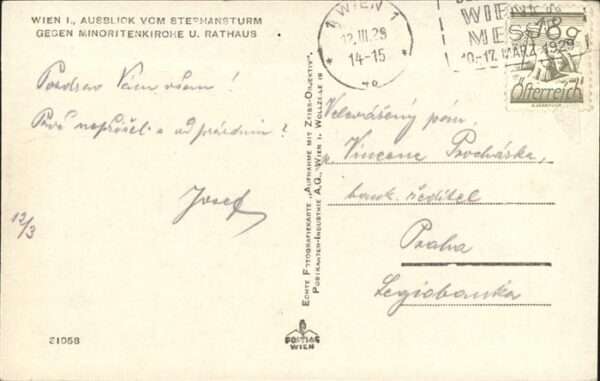 WIEN I., AUSBLICK VOM STEPHANSTURM
GEGEN MINORITENKIRCHE U. RATHAUS
Pozdrav Vám všem!
Proč nepřišel a od prázdnin?
Josef
12/3
31058
ECHTE FOTOGRAFIEKARTE „AUFNAHME MIT ZEISS-OBJEKTIV"
POSTKARTEN-INDUSTRIE A.G., WIEN I. WOLLZEILE 18
POSTIAG
WIEN
1 WIEN 1
12.III.29
14-15
WIENER
MESSE
10.-17. MÄRZ 1929
18g
Österreich
Velevážený pán,
p. Vincenc Procházka,
bank. ředitel
Praha
Legiobanka